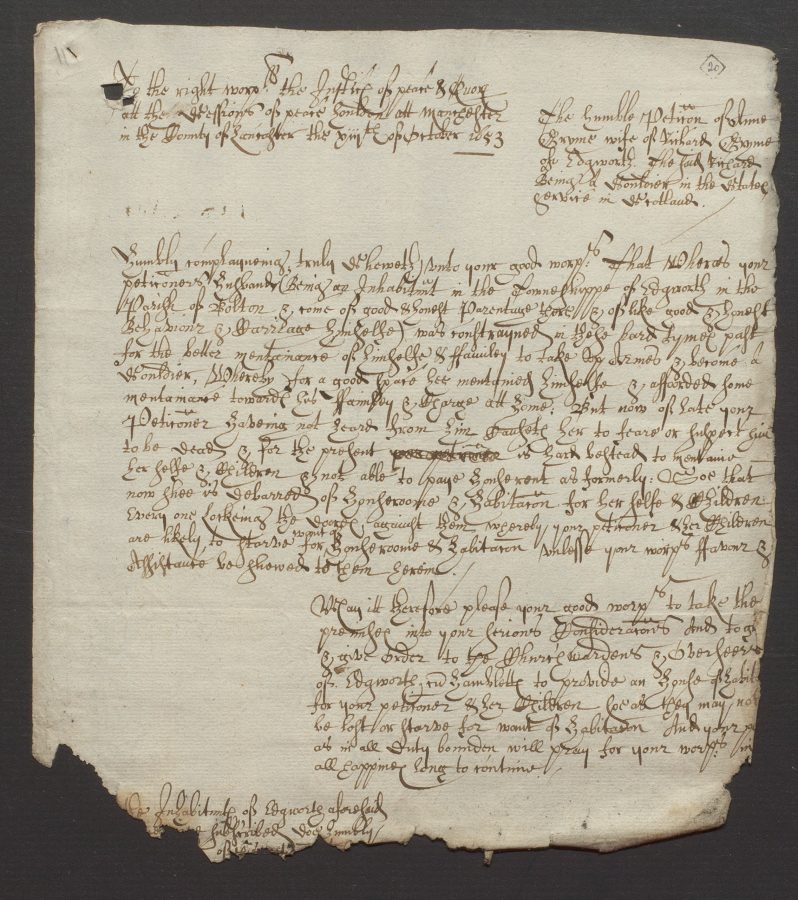 20
To the right worpll the Justices of peace & Quor
att the Sessions of peace houlden att Manchester
in the County of Lancaster the xiijth of October 1653
The humble Peticõn of Anne
Gryme wife of Richard Gryme
of Edgworth. The said Richard
Being a Souldier in the States
service in Scotland.
Humbly complayneing, truly Sheweth, unto your good worpps That Wheras your
peticoners husband (Being an Inhabitant in the Towneshippe of Edgworth in the
Parish of Bolton & come of good & honest Parentage there & of like good & honest
Behaviour & Carriage himselfe) was constrayned in these hard tymes past
for the better mentainance of himselfe & ffamiley to take up Armes & become a
Souldier, Whereby for a good space hee mentained himselfe & afforded some
mentainance towards his ffamiley & Charge att home; But now of late your
Peticõner haveing not heard from him Causeth her to feare or suspect him
to be dead & for the present is hard bestead to mentaine
her selfe & Children & not able to paye houserent as formerly: Soe that
now shee is debarred of houseroome & habitacõn for her selfe & Children:
Every one lockeing the doores against them whereby your peticõner & her Children
are likely to starve for want of houseroome & habitacõn unlesse your worpps ffavour &
Assistance be shewed to them herein.
May itt therefore please your good worpps to take the
premisses into your serious Consideracõns And to
& give order to the Churchwardens & Overseers
of Edgworth cũ hamlettis to provide an house
for your peticõner & her Children soe as they may not
be lost or starve for want of habitacõn And your
as in all duty bounden will pray for your worpps in
all happines long to continue
Inhabitants of Edgworth aforesaid
subscribed doe humbly